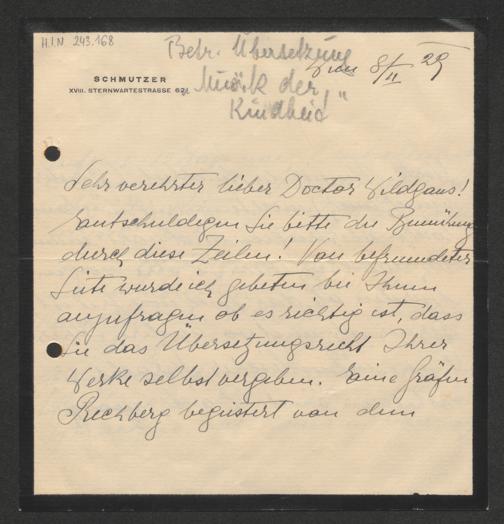 H.I.N. 243.168
Betr. Übersetzung
"Musik der
Kindheit"
Wien 8/II 29
SCHMUTZER
XVIII. STERNWARTESTRASSE 62/I
Sehr verehrter lieber Doctor Wildgans!
Entschuldigen Sie bitte die Bemühung
durch diese Zeilen! Von befreundeter
Seite wurde ich gebeten bei Ihnen
anzufragen ob es richtig ist, dass
Sie das Übersetzungsrecht Ihrer
Werke selbst vergeben. Eine Gräfin
Rechberg begeistert von dem